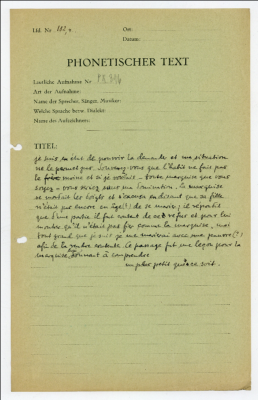 Lfd. Nr. 182,2
Ort:
Datum:
PHONETISCHER TEXT
Lautliche Aufnahme Nr.
Art der Aufnahme:
Name des Sprechers, Sängers, Musikers:
Welche Sprache bezw. Dialekt:
Name des Aufzeichners:
TITEL:
je suis en état de pouvoir la demande et ma situation
ne le permet pas. Souvenez-vous que l'habit ne fait pas
le moine et si je voulais - toute marquise que vous
soyez - vous seriez sans une . La marquise
se mordait les doigts et s'excusa en disant que sa fille
n'était pas encore en âge de se marier; il répartit
que d'une partie il fut content de ce refus et pour lui
montrer qu'il n'était pas fier comme la marquise, moi
tout grand que je suis je me marierai avec une pauvre (?)
afin de la rendre contente. Ce passage fut une leçon pour la
marquise, donnant à comprendre
un plus petit que soi.